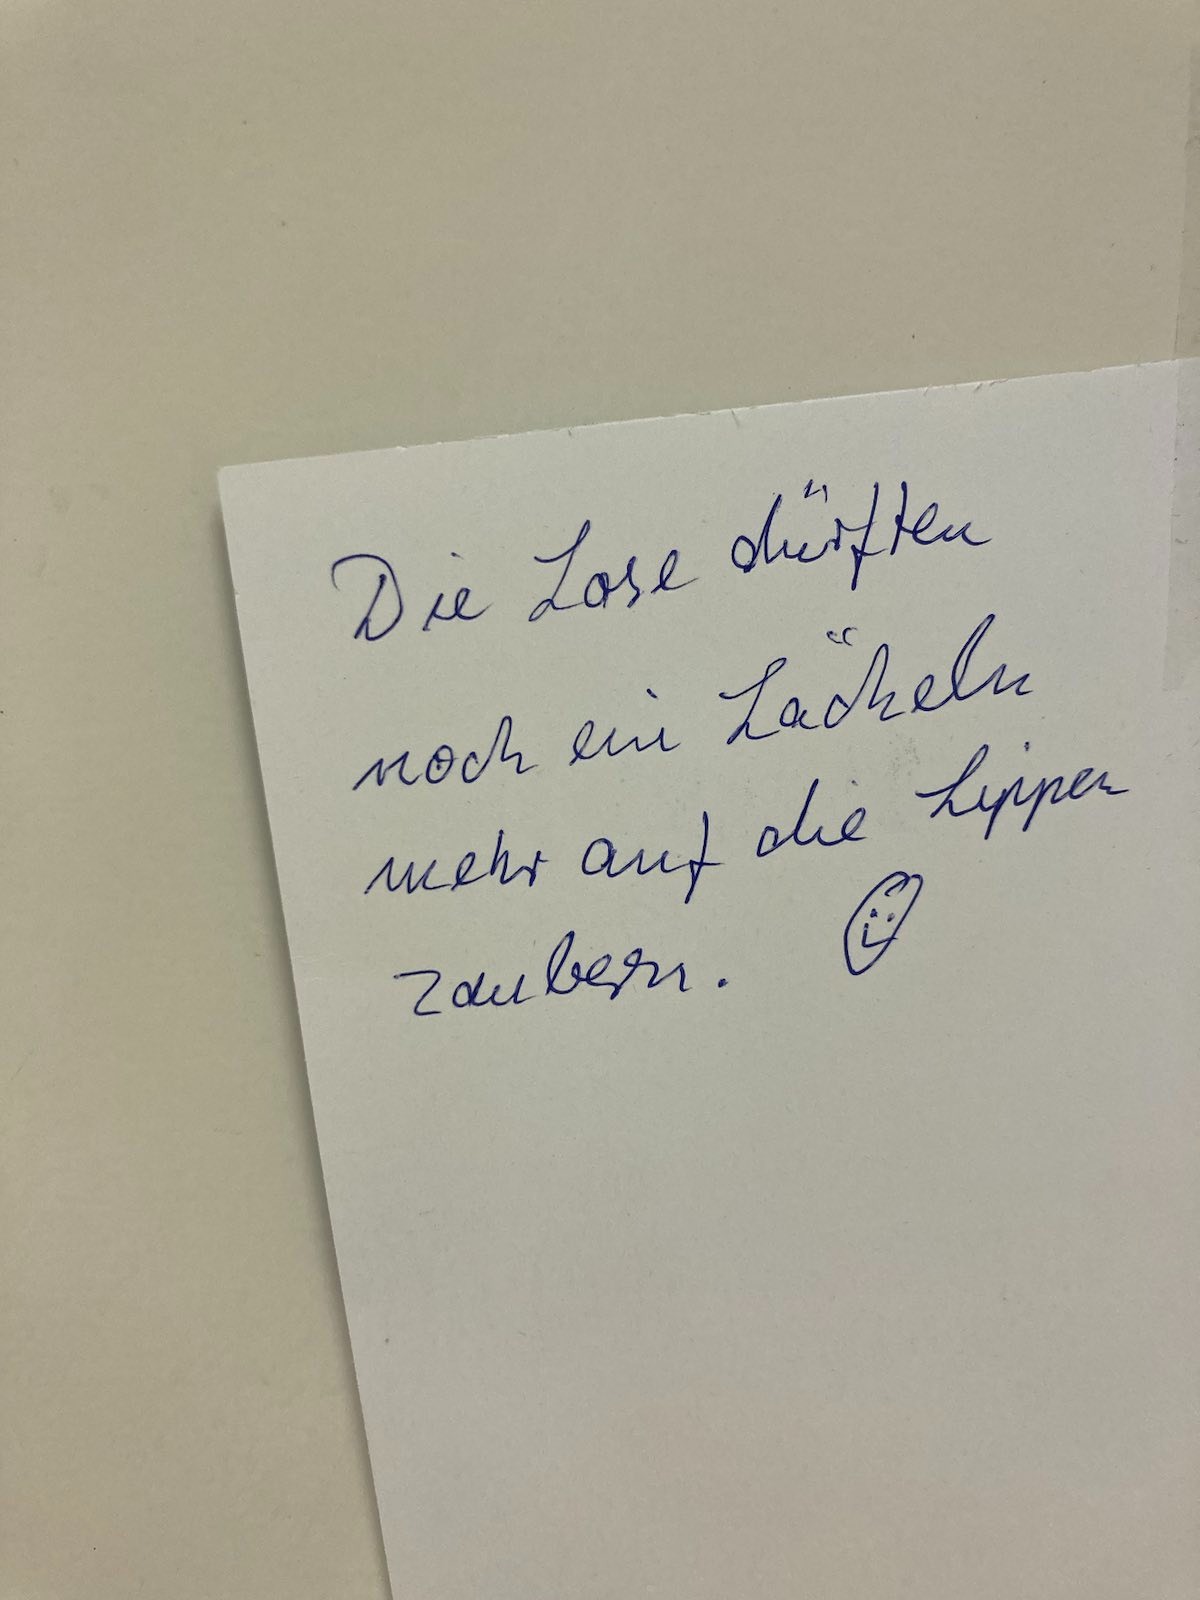 Die Lose dürften
noch ein Lächeln
mehr auf die Lippen
zaubern.